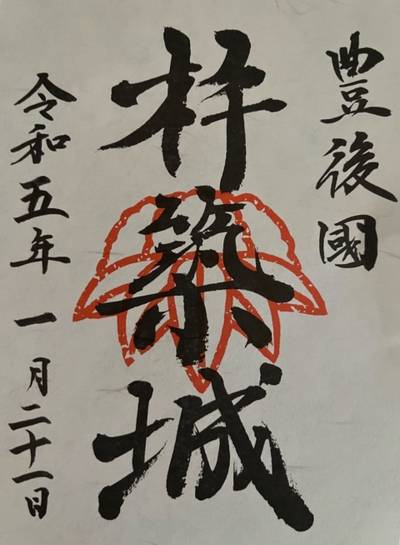 豊後國
杵築城
令和五年 一月二十一日